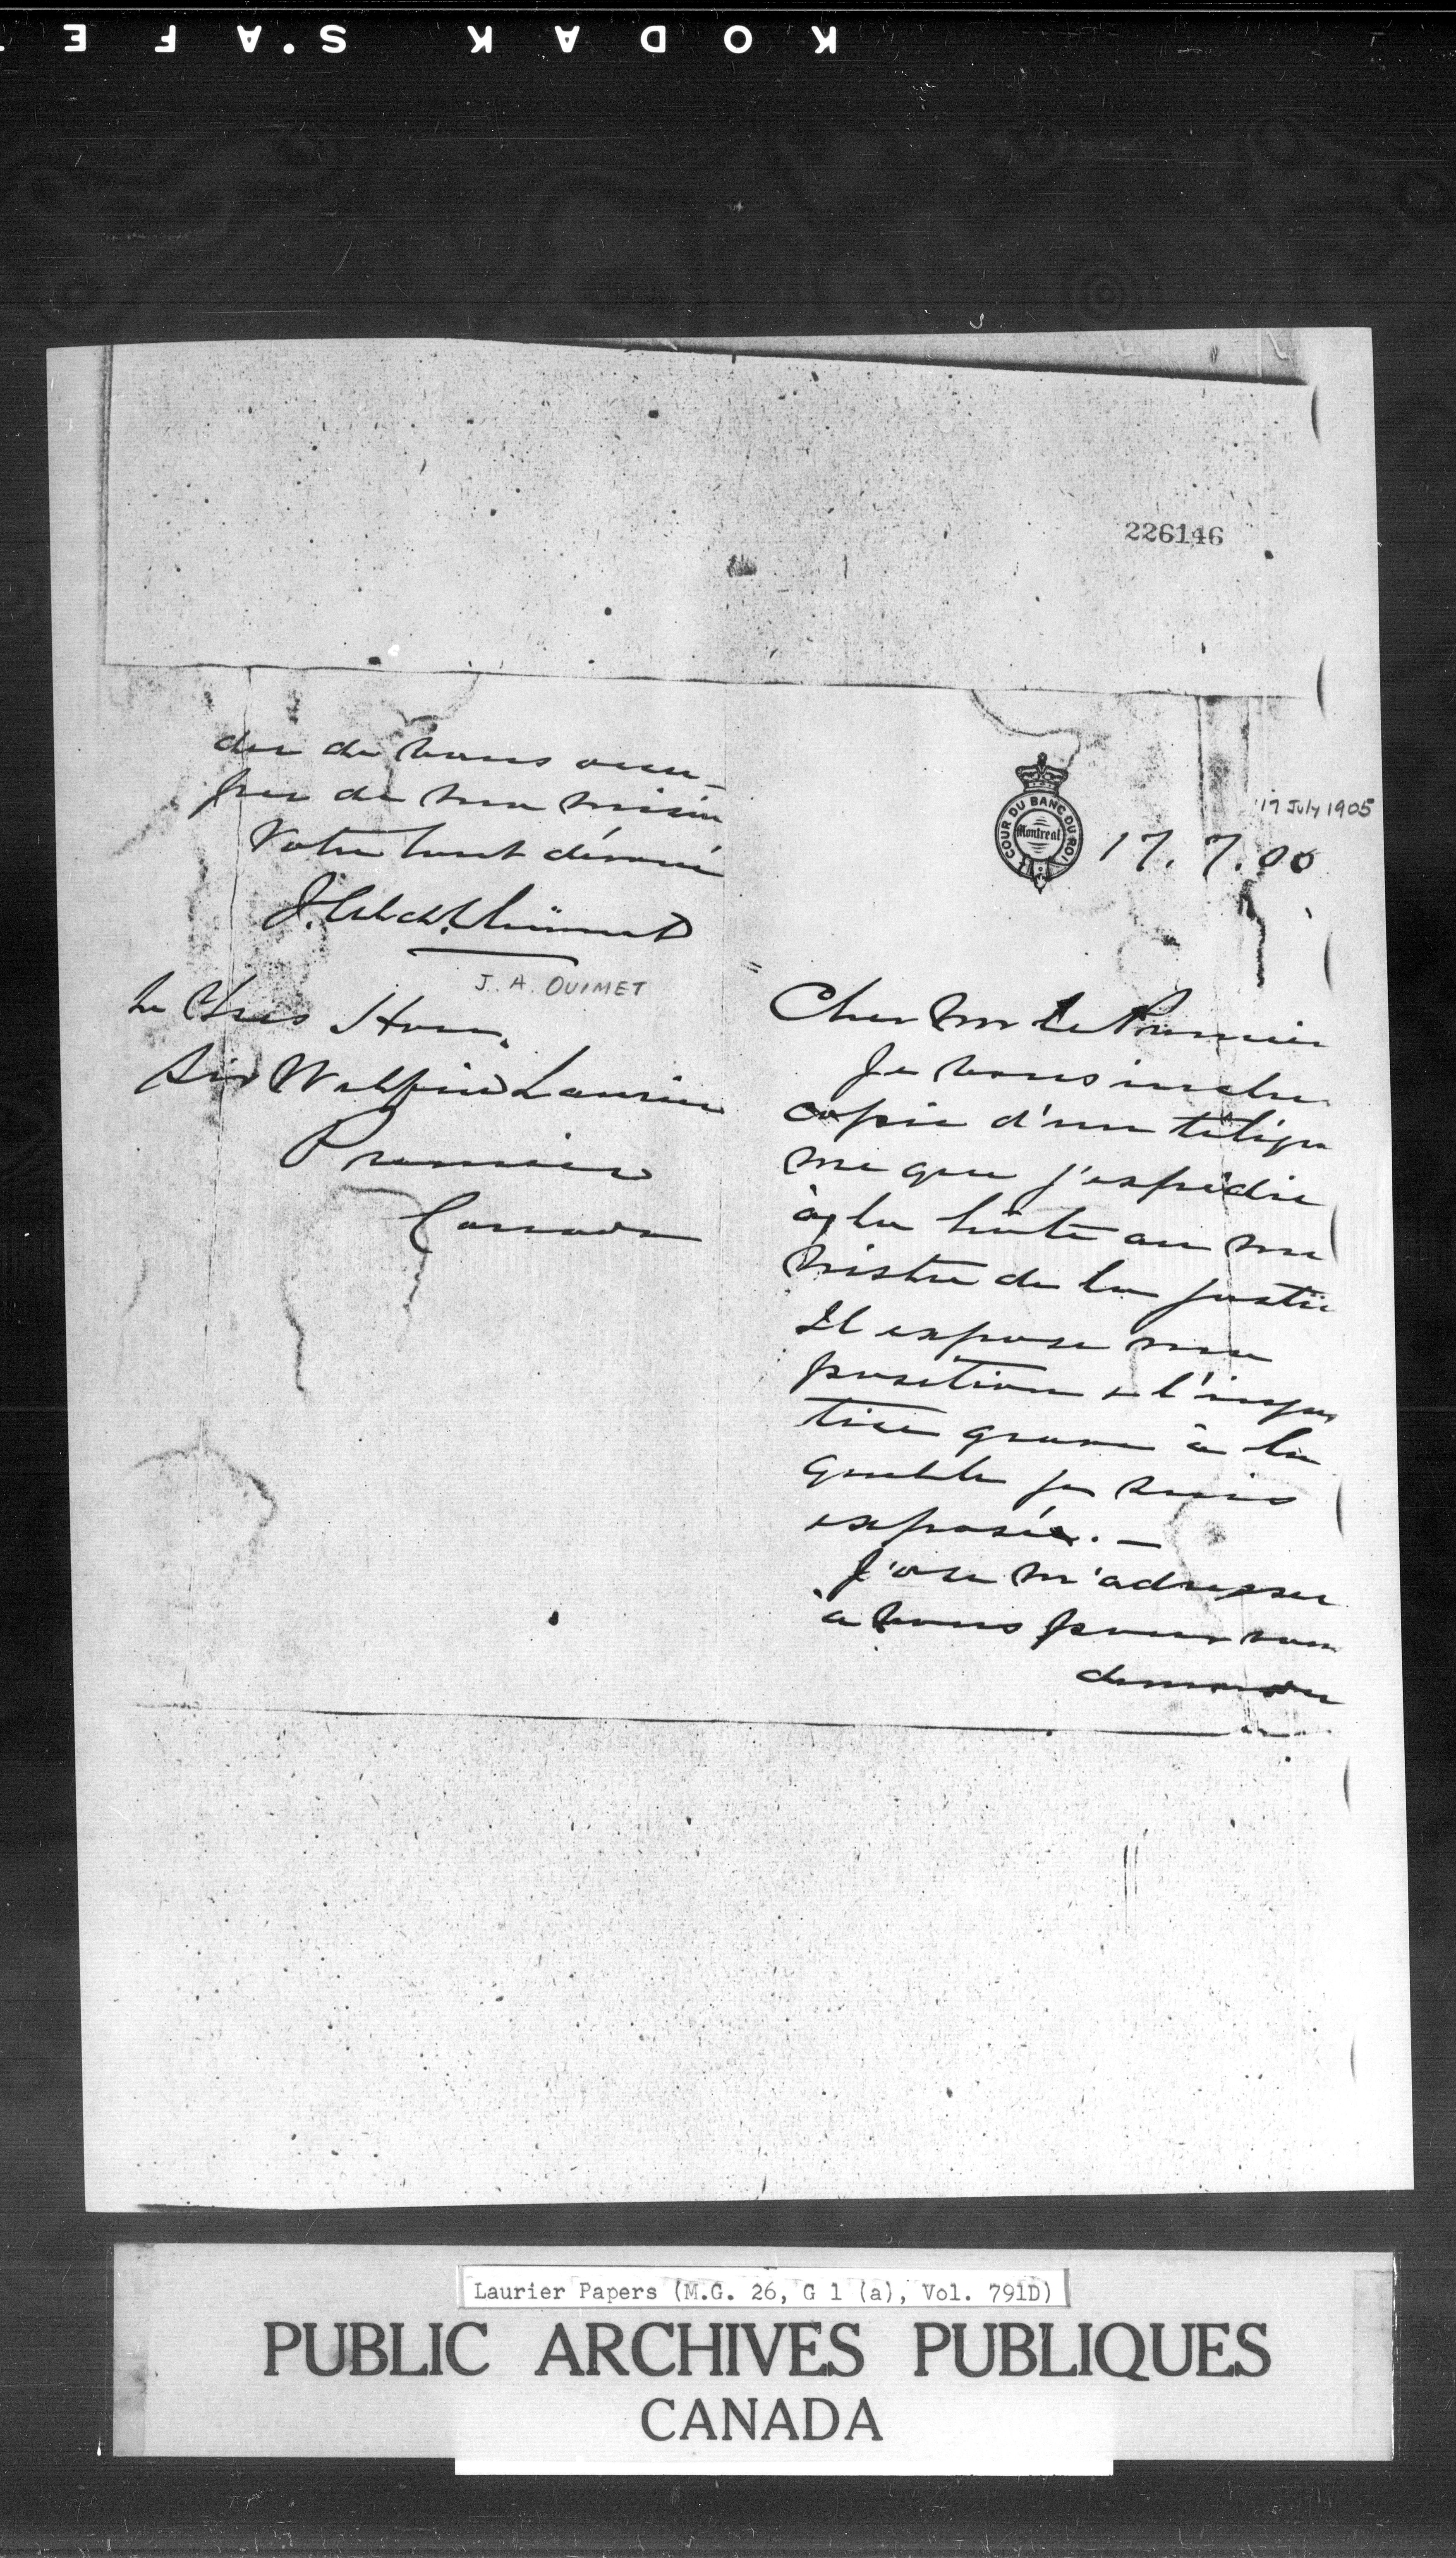 KODAK S.A F E
226146
COUR DU BANC DU ROI
Montreal
17 July 1905
17. 7. 05
Cher Mr le Premier
Je vous inclus
copie d'un télégra
me que j'expédie
à la hâte au mi
nistre de la justice
Il expose ma
position & l'injus
tice grave à la
quelle je suis
exposé. —
J'ose m'adresser
à vous pour vous
deman
der de vous occu-
per de
Votre tout dévoué
J. Ald. Ouimet
J. A. OUIMET
Le Très Hon.
Sir Wilfrid Laurier
Premier
Canada
Laurier Papers (M.G. 26, G 1 (a), Vol. 791D)
PUBLIC ARCHIVES PUBLIQUES
CANADA